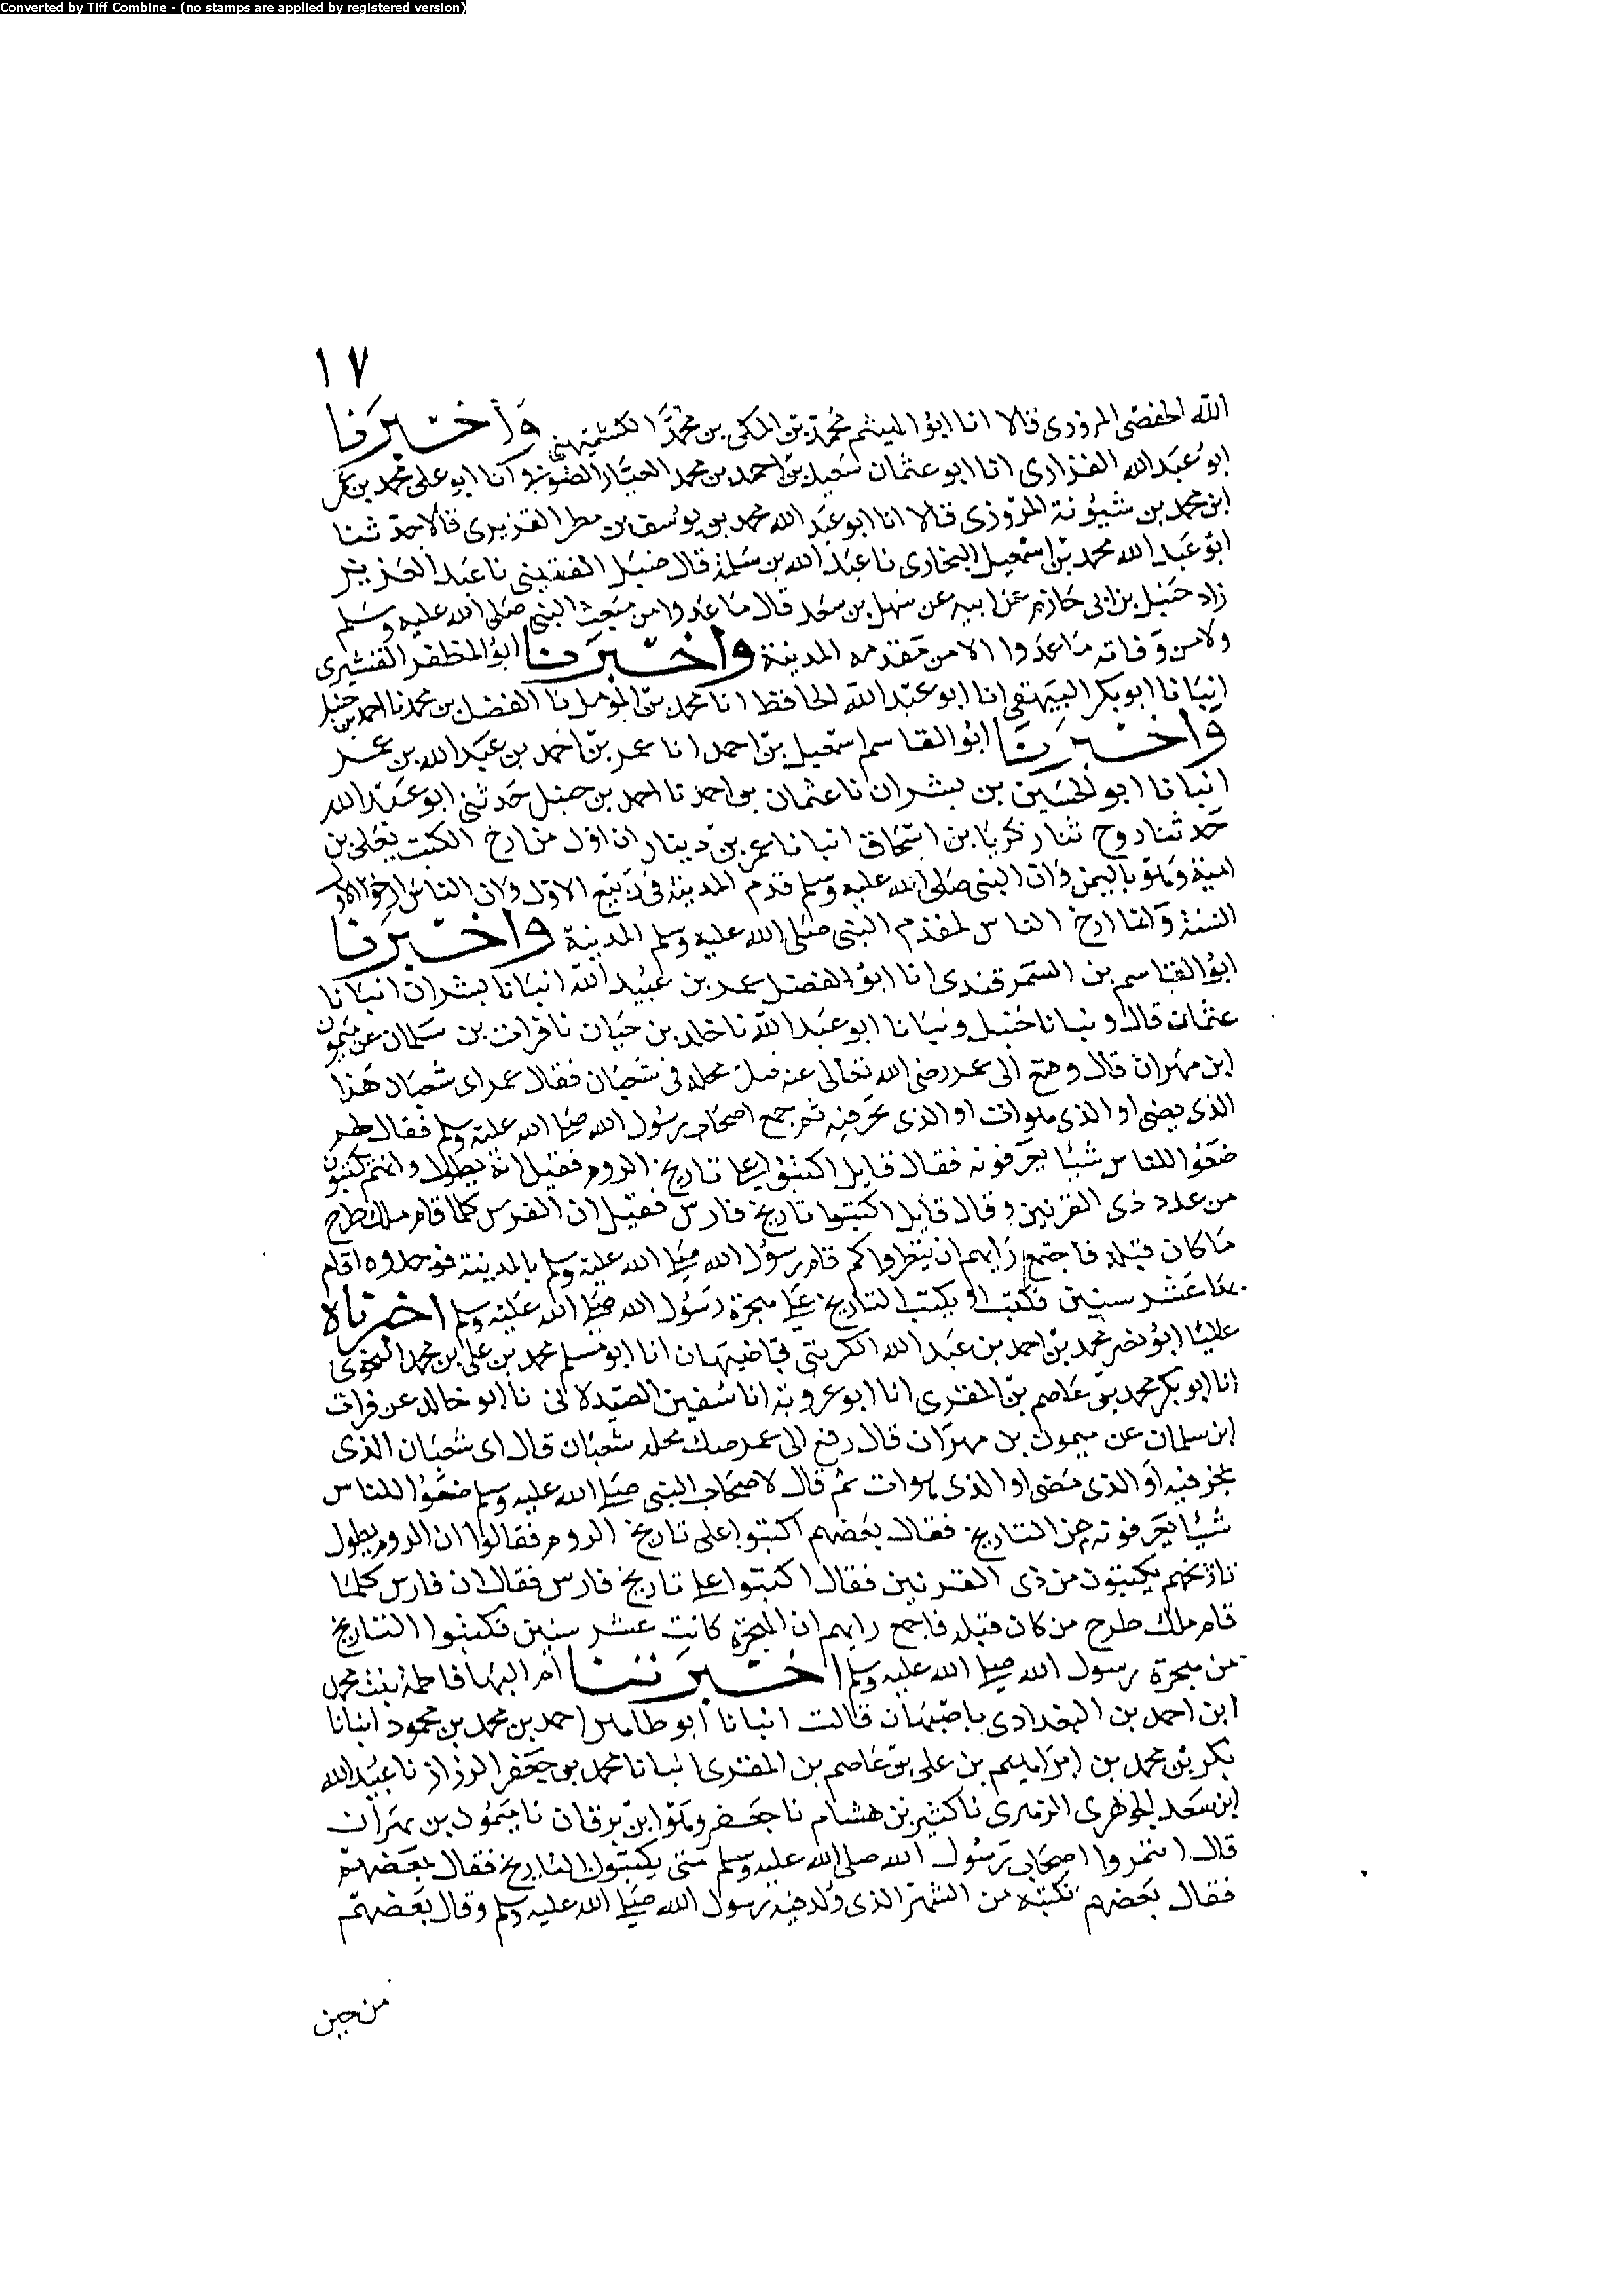 Converted by Tiff Combine - (no stamps are applied by registered version)
١٧
الله الحفصى المروزى قالا انا ابو الهيثم محمد بن المكى بن محمد الكشميهنى وأخبرنا
ابو عبد الله الفزارى انا ابو عثمان سعيد بن احمد بن محمد العيار الصوفى انا ابو على محمد بن عمر
ابن محمد بن شبوية المروزى قالا انا ابو عبد الله محمد بن يوسف بن مطر الفزيرى قالا حدثنا
ابو عبد الله محمد بن اسمعيل البخارى نا عبد الله بن سلمة قال حنبل القعنبى نا عبد العزيز
زاد حنبل بن ابى حازم عن ابيه عن سهل بن سعد قال ما عدوا من مبعث النبى صلى الله عليه وسلم
ولا من وفاته ما عدوا الا من مقدمه المدينة واخبرنا ابو المظفر القشيرى
انبانا ابو بكر البيهقى انا ابو عبد الله الحافظ انا محمد بن المومل نا الفضل بن محمد نا احمد بن حنبل
واخبرنا ابو القاسم اسمعيل بن احمد انا عمر بن احمد بن عبد الله بن عمر
انبانا ابو الحسين بن بشران نا عثمان بن احمد نا احمد بن حنبل حدثنى ابو عبد الله
حدثنا روح ثنا زكريا بن اسحاق انبانا عمر بن دينار ان اول من ارخ الكتب يعلى بن
امية وهو باليمن وان النبى صلى الله عليه وسلم قدم المدينة فى ربيع الاول وان الناس ارخوا لاول
السنة وانما ارخ الناس لمقدم النبى صلى الله عليه وسلم المدينة واخبرنا
ابو القاسم بن السمرقندى انا ابو الفضل عمر بن عبيد الله انبانا بشران انبانا
عثمان قال ونبانا حنبل ونبانا ابو عبد الله نا خالد بن حيان نا فرات بن سلمان عن ميمون
ابن مهران قال وقع الى عمر رضى الله تعالى عنه صك محله فى شعبان فقال عمر اى شعبان هذا
الذى يضى او الذى هو ات او الذى نحن فيه ثم جمع اصحاب رسول الله صلى الله عليه وسلم فقال لهم
ضعوا للناس شيئا يعرفونه فقال قايل اكتبوا على تاريخ الروم فقيل انه يطول وانهم يكتبون
من عدد ذى القرنين وقال قايل اكتبوا تاريخ فارس فقيل ان الفرس كلما قام ملك طرح
ما كان قبله فاجتمع رايهم ان ينظروا كم قام رسول الله صلى الله عليه وسلم بالمدينة فوجدوه اقام
بها عشر سنين فكتب او يكتب التاريخ على هجرة رسول الله صلى الله عليه وسلم اخبرناه
عاليا ابو نصر محمد بن احمد بن عبد الله الكريتى باصبهان انا ابو مسلم محمد بن على بن محمد النحوى
انا ابو بكر محمد بن عاصم بن المقرى انا ابو عروبة انا سفين الصيدلانى نا ابو خالد عن فرات
ابن سلمان عن ميمون بن مهران قال رفع الى عمر صك محله شعبان قال اى شعبان الذى
نحن فيه او الذى مضى او الذى هو ات ثم قال لاصحاب النبى صلى الله عليه وسلم ضعوا للناس
شيئا يعرفونه من التاريخ فقال بعضهم اكتبوا على تاريخ الروم فقالوا ان الروم يطول
تاريخهم يكتبون من ذى القرنين فقال اكتبوا على تاريخ فارس فقال ان فارس كلما
قام ملك طرح من كان قبله فاجمع رايهم ان الهجرة كانت عشر سنين فكتبوا التاريخ
من هجرة رسول الله صلى الله عليه وسلم اخبرتنا ام البها فاطمة بنت محمد
ابن احمد بن البغدادى باصبهان قالت انبانا ابو طاهر احمد بن محمد بن محمود انبانا
بكر بن محمد بن ابراهيم بن على بن عاصم بن المقرى انبانا محمد بن جعفر الرزاز نا عبيد الله
ابن سعد الجوهرى الزهرى نا كثير بن هشام نا جعفر وهو ابن برقان نا ميمون بن مهران
قال ائتمروا اصحاب رسول الله صلى الله عليه وسلم متى يكتبون التاريخ فقال بعضهم
فقال بعضهم نكتبه من الشهر الذى ولد فيه رسول الله صلى الله عليه وسلم وقال بعضهم
من حين